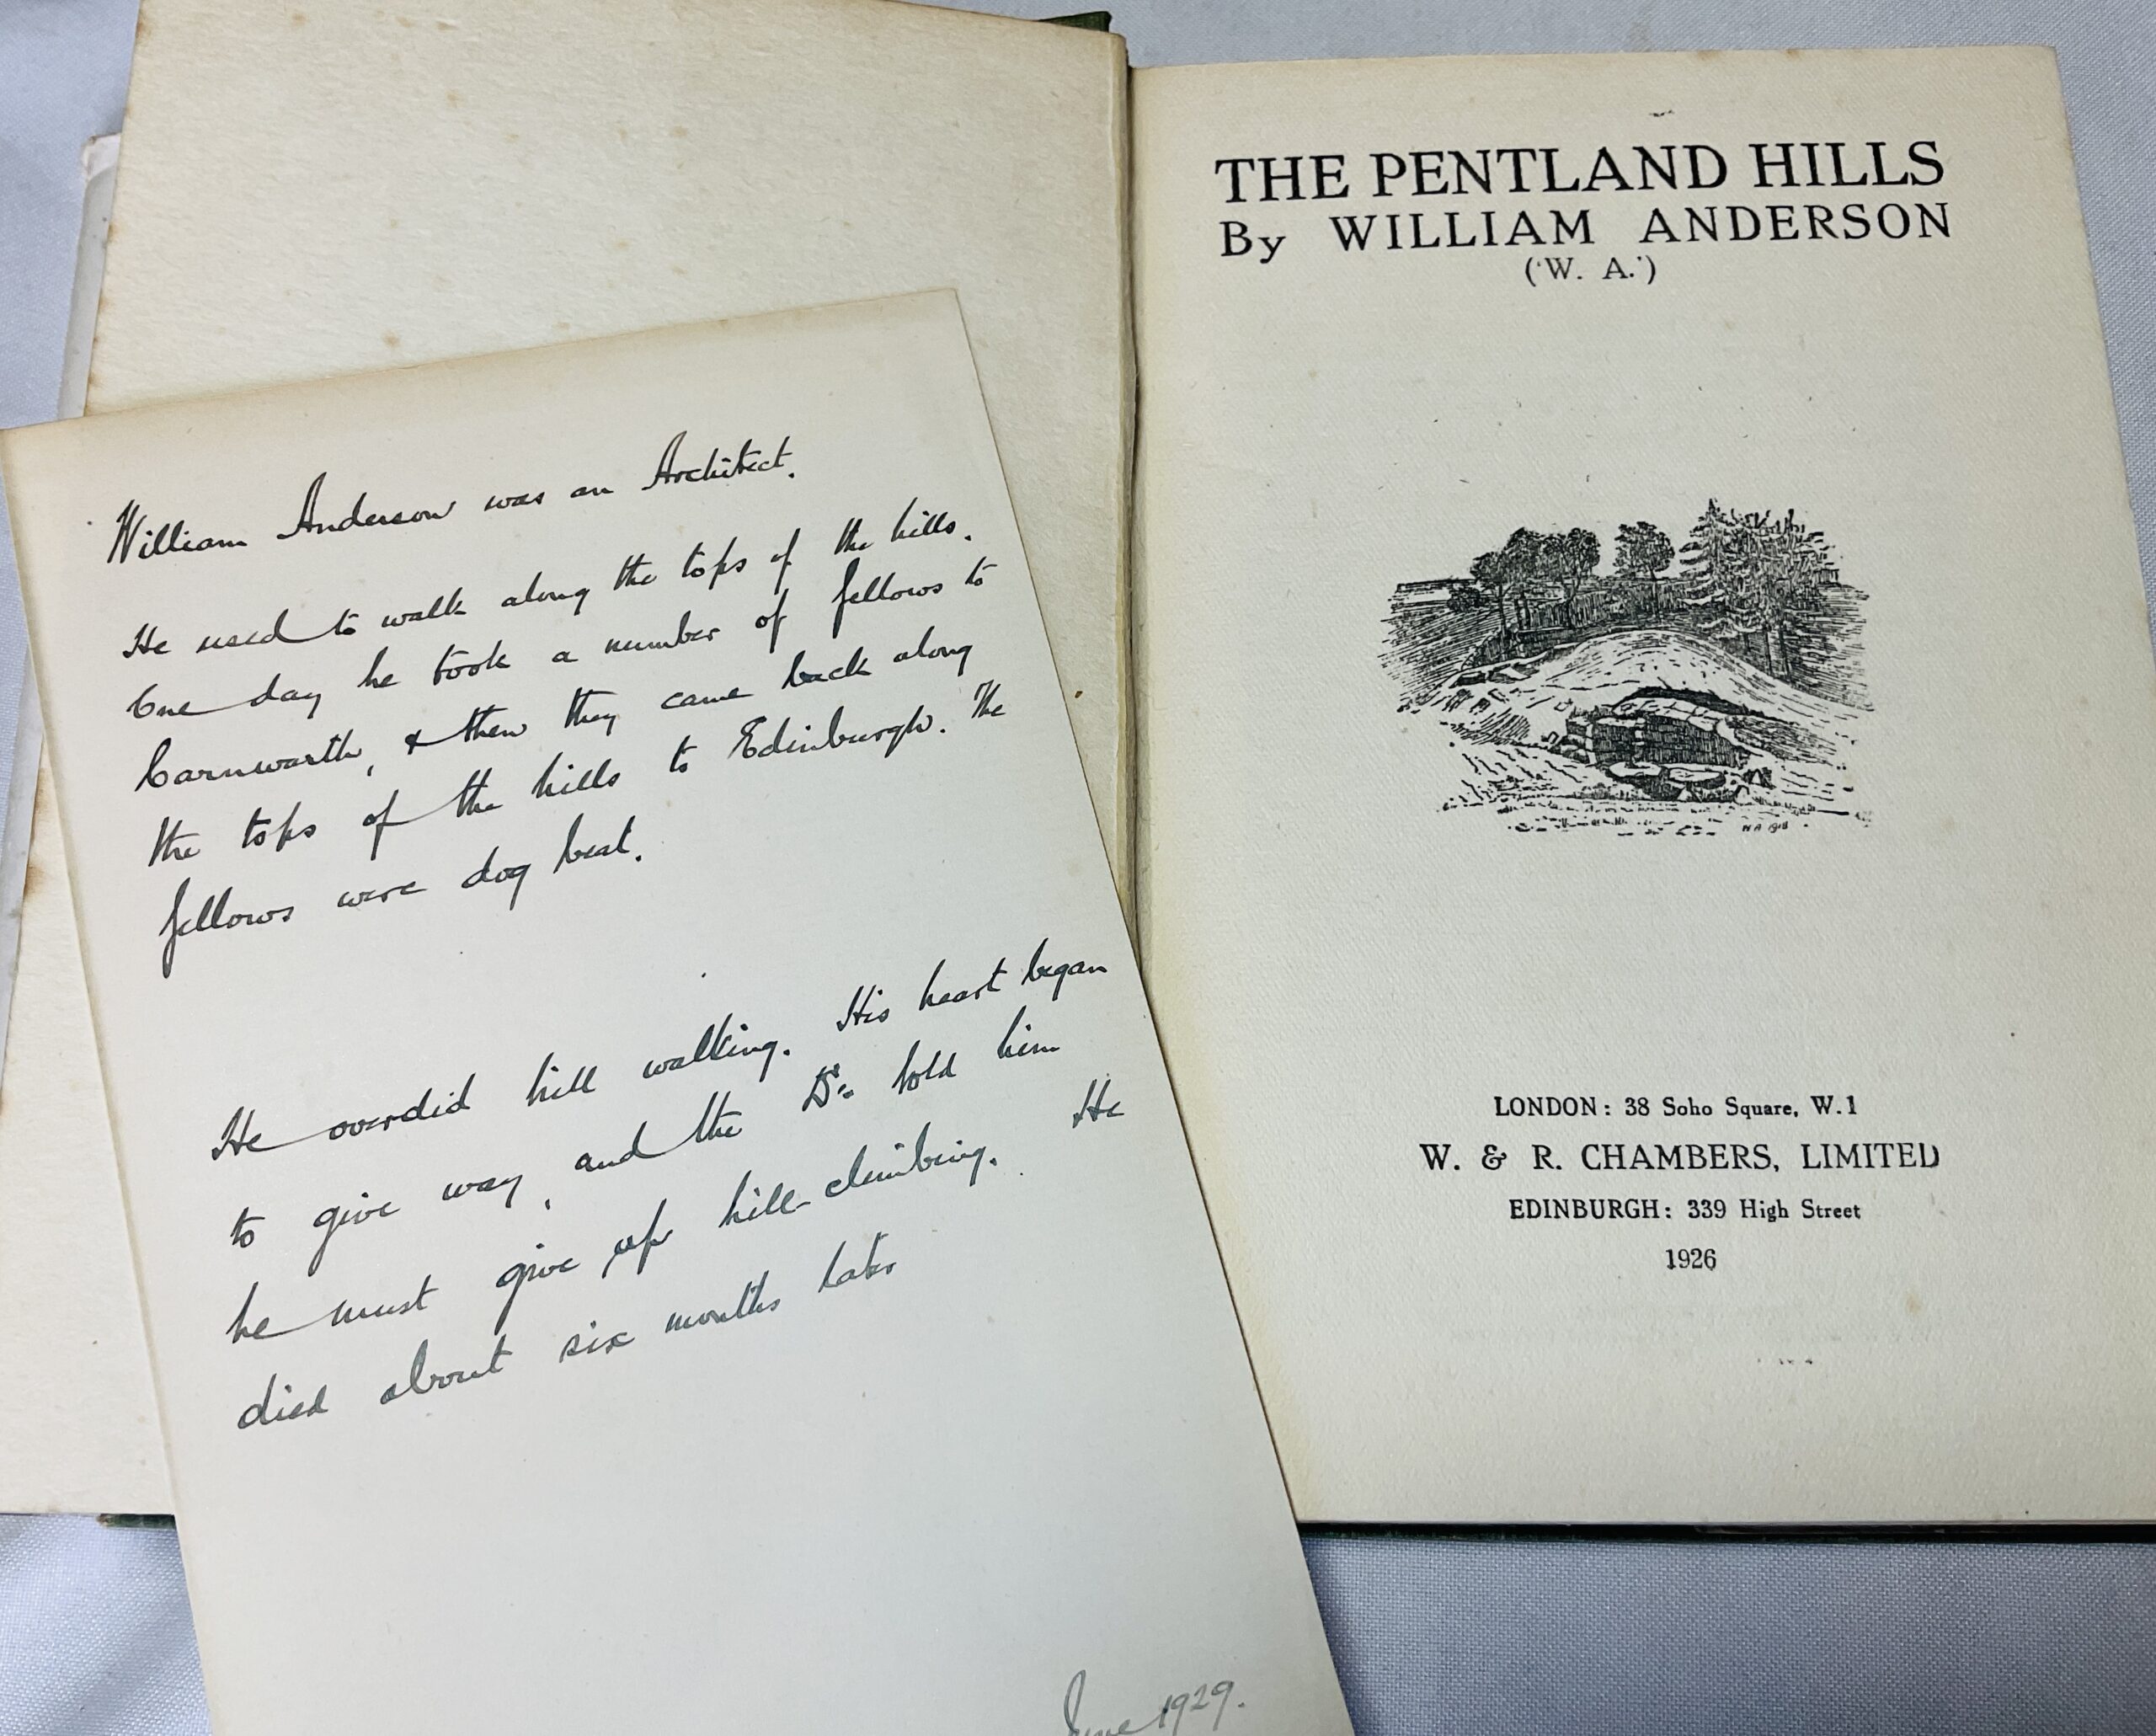 William Anderson was an Architect.
He used to walk along the tops of the hills.
One day he took a number of fellows to
Carnwarth, & then they came back along
the tops of the hills to Edinburgh. The
fellows were dog beat.
He overdid hill walking. His heart began
to give way, and the Dr. told him
he must give up hill-climbing. He
died about six months later
June 1929.
THE PENTLAND HILLS
By WILLIAM ANDERSON
('W. A.')
W A 1918
LONDON: 38 Soho Square, W.1
W. & R. CHAMBERS, LIMITED
EDINBURGH: 339 High Street
1926